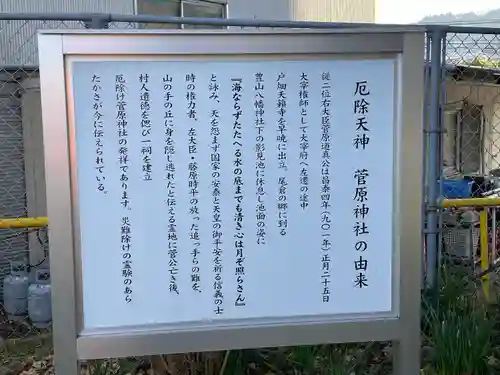 厄除天神 菅原神社の由来
従二位右大臣菅原道真公は昌泰四年(九〇一年)正月二十五日
大宰権師として大宰府へ左遷の途中
戸畑天籟寺を早暁に出立。尾倉の郷に到る
豊山八幡神社下の影見池に休息し池面の姿に
『海ならずたたへる水の底までも清き心は月ぞ照らさん』
と詠み、天を怨まず国家の安泰と天皇の御平安を祈る信義の士
時の権力者、左大臣・藤原時平の放った追っ手らの難を、
山の手の丘に身を隠し逃れたと伝える霊地に菅公亡き後、
村人遺徳を偲び一祠を建立
厄除け菅原神社の発祥であります。災難除けの霊験のあら
たかさが今に伝えられている。